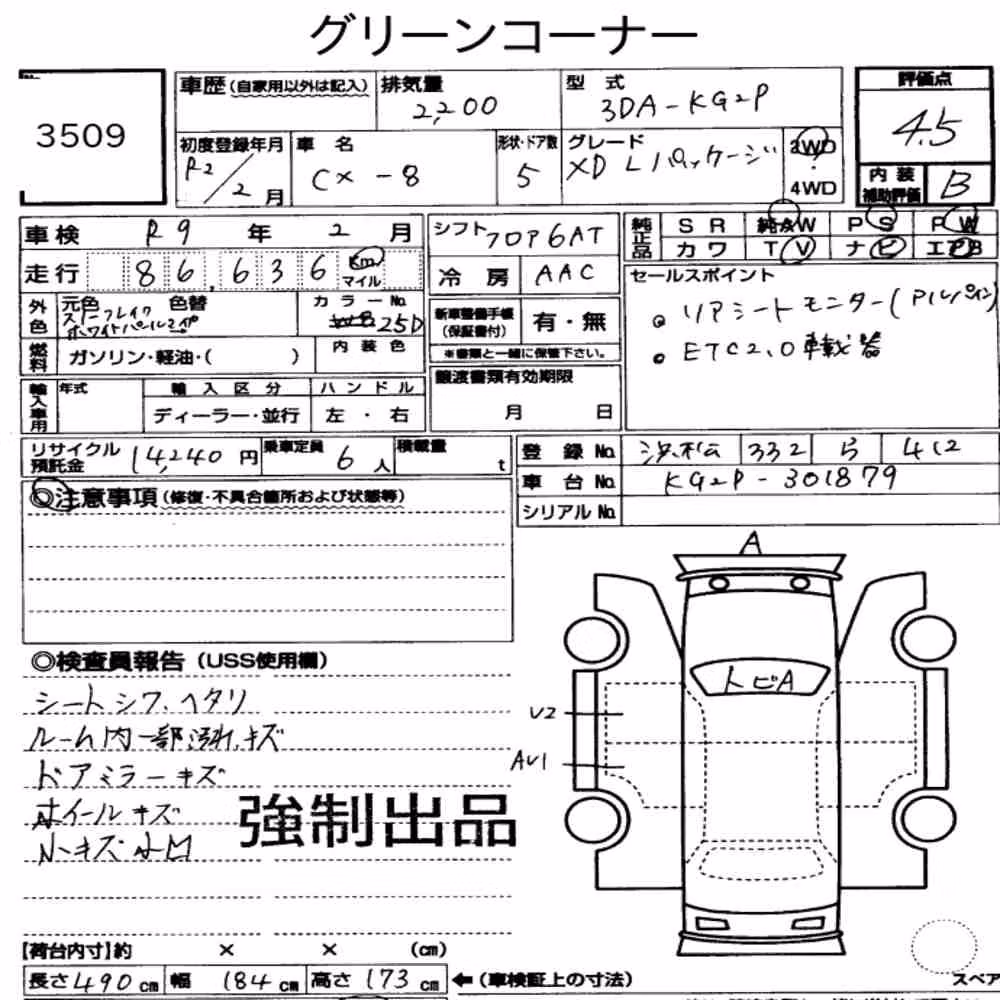 グリーンコーナー
3509
車歴(自家用以外は記入) 排気量 2,200 型式 3DA-KG2P 評価点 4.5
初度登録年月 R2/2月 車名 CX-8 形状・ドア数 5 グレード XD Lパッケージ 2WD・4WD 内装補助評価 B
車検 R9年2月 シフト フロア6AT 純正品 SR 純AW PS PW
走行 86,636 Km マイル 冷房 AAC カワ TV ナビ エアB
外色 元色 スノーフレイクホワイトパールマイカ 色替 カラーNo. 25D 新車整備手帳(保証書付) 有・無 セールスポイント
燃料 ガソリン・軽油・( ) 内装色 ※書類と一緒に保管下さい。 リアシートモニター(アルパイン)
輸入車用 年式 輸入区分 ハンドル 譲渡書類有効期限 ETC2.0車載器
ディーラー・並行 左・右 月 日
リサイクル預託金 14,240円 乗車定員 6人 積載量 t 登録No. 浜松 332 ら 412
車台No. KG2P-301879
◎注意事項(修復・不具合箇所および状態等) シリアルNo.
◎検査員報告(USS使用欄)
シートシワ、ヘタリ
ルーム内一部汚れ、キズ
ドアミラーキズ
ホイールキズ
小キズ小凹
強制出品
A
トビA
U2
AU1
【荷台内寸】約 × × (cm)
長さ490cm 幅184cm 高さ173cm ←(車検証上の寸法) スペア